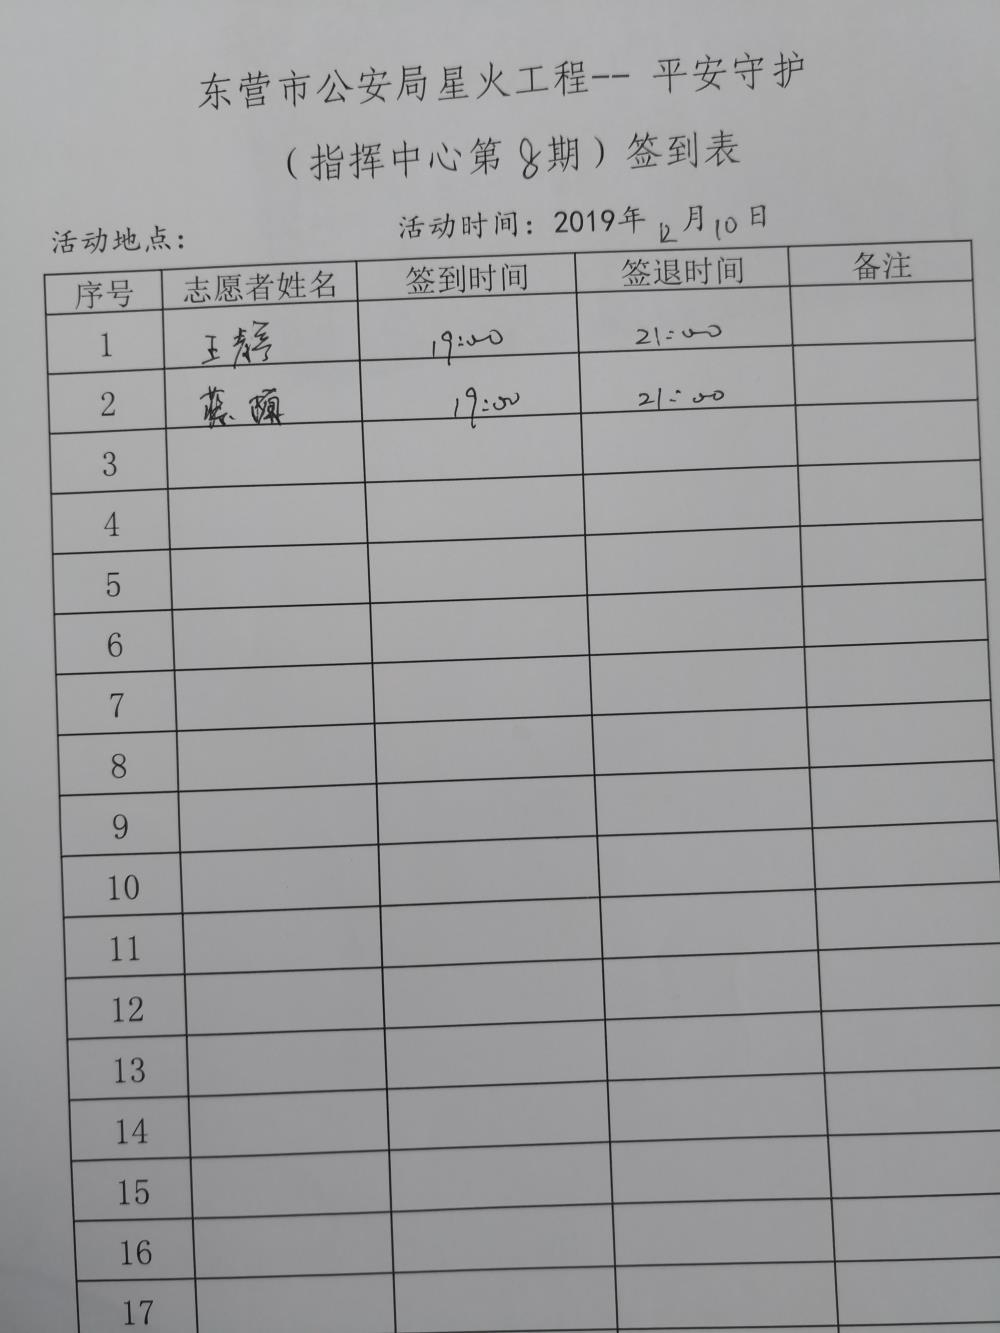 东营市公安局星火工程-- 平安守护
（指挥中心第8期）签到表
活动地点： 活动时间：2019年12月10日
序号 志愿者姓名 签到时间 签退时间 备注
1 王 19:00 21:00
2 19:00 21:00
3
4
5
6
7
8
9
10
11
12
13
14
15
16
17